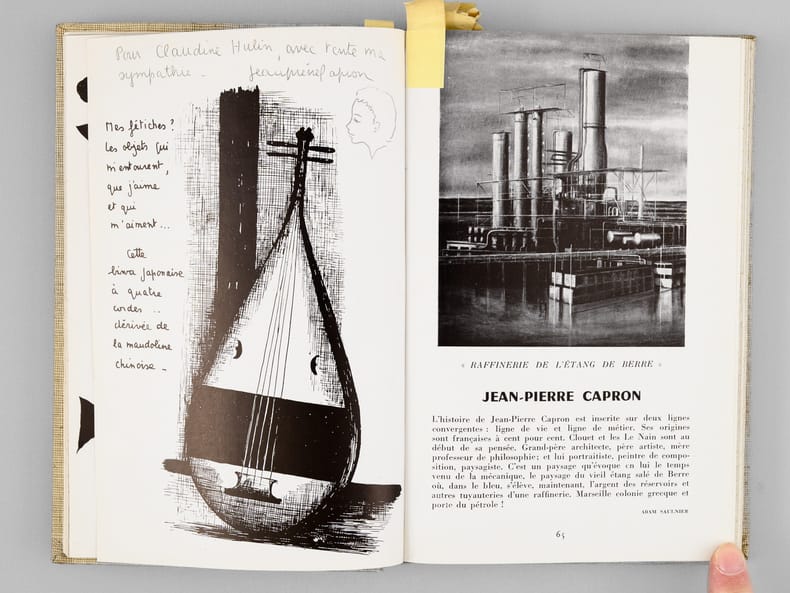 Pour Claudine Hulin, avec toute ma
sympathie - Jean-Pierre Capron
Mes fétiches ?
Les objets qui
m'entourent,
que j'aime
et qui
m'aiment...
Cette
biwa Japonaise
à quatre
cordes ..
dérivée de
la mandoline
chinoise -
« RAFFINERIE DE L'ÉTANG DE BERRE »
JEAN-PIERRE CAPRON
L'histoire de Jean-Pierre Capron est inscrite sur deux lignes
convergentes : ligne de vie et ligne de métier. Ses origines
sont françaises à cent pour cent. Clouet et les Le Nain sont au
début de sa pensée. Grand-père architecte, père artiste, mère
professeur de philosophie; et lui portraitiste, peintre de compo-
sition, paysagiste. C'est un paysage qu'évoque en lui le temps
venu de la mécanique, le paysage du vieil étang salé de Berre
où, dans le bleu, s'élève, maintenant, l'argent des réservoirs et
autres tuyauteries d'une raffinerie. Marseille colonie grecque et
porte du pétrole !
ADAM SAULNIER
65